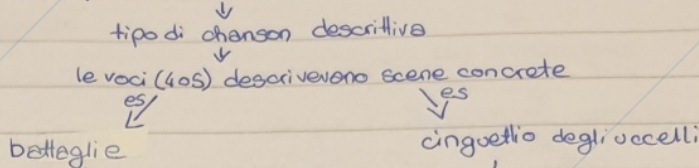 tipo di chanson descrittiva
le voci (4 o 5) descrivevano scene concrete
es es
battaglie cinguettio degli uccelli